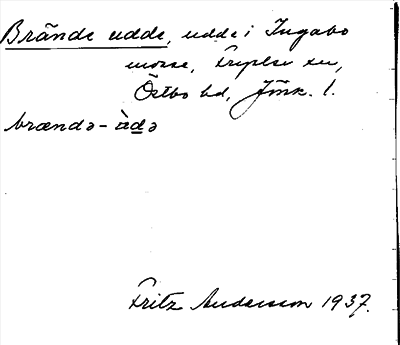 Brände udde, udde i Ingabo
mosse, Fryele sn,
Östbo hd, Jönk. l.
brændə-ùdə
Fritz Andersson 1937.